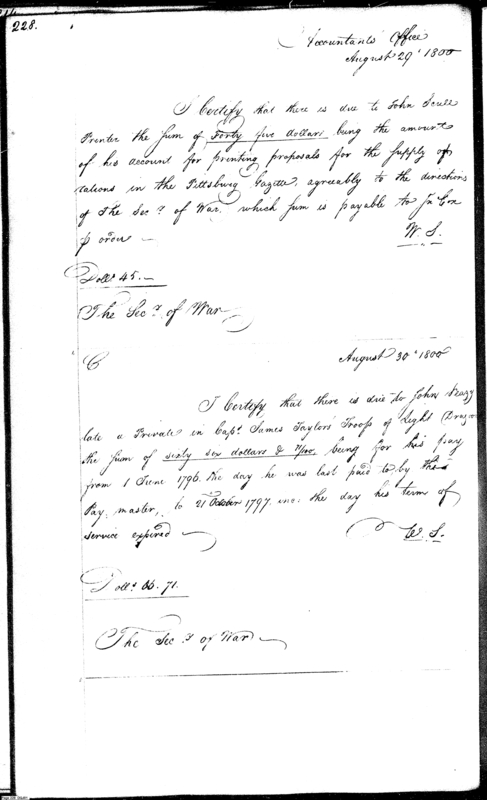 228.
Accountants Office
August 29th 1800
I Certify that there is due to John Scull
Printer the sum of Forty five dollars being the amount
of his account for printing proposals for the supply of
rations in the Pittsburg Gazette, agreeably to the directions
of The Secy. of War, which sum is payable to
p order
W. S.
Dolls. 45.
The Secy. of War
C
August 30th 1800
I Certify that there is due to John
late a Private in Capt. James Taylors Troop of Light
the sum of sixty six dollars & 71/100, being for his pay
from 1 June 1796 the day he was last paid to by the
Pay master, to 21 October 1797. inc: the day his term of
service expired
W. S.
Dolls. 66. 71.
The Secy. of War